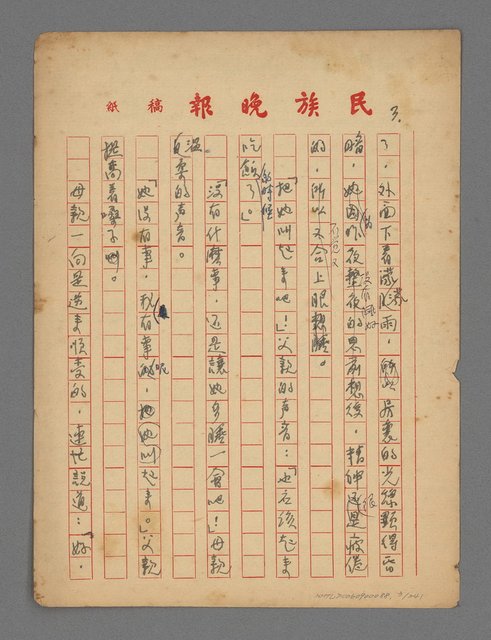 民族晚報 稿紙
3.
了,外面下着濛濛雨,所以房裏的光線顯得昏
暗,她因昨夜整夜的思前想後,沒有睡好,精神還是很疲倦
的,所以又合上眼想睡。
「把她叫起來吧!」父親的声音:「也应該起來
吃飯的時候了。」
「沒有什麼事,还是讓她多睡一會吧!」母親
温柔的声音。
「她沒有事,我有事呢,把她叫起來。」父親
提高着嗓子
母親一向是逆來順受的,連忙說道:「好,
3/241